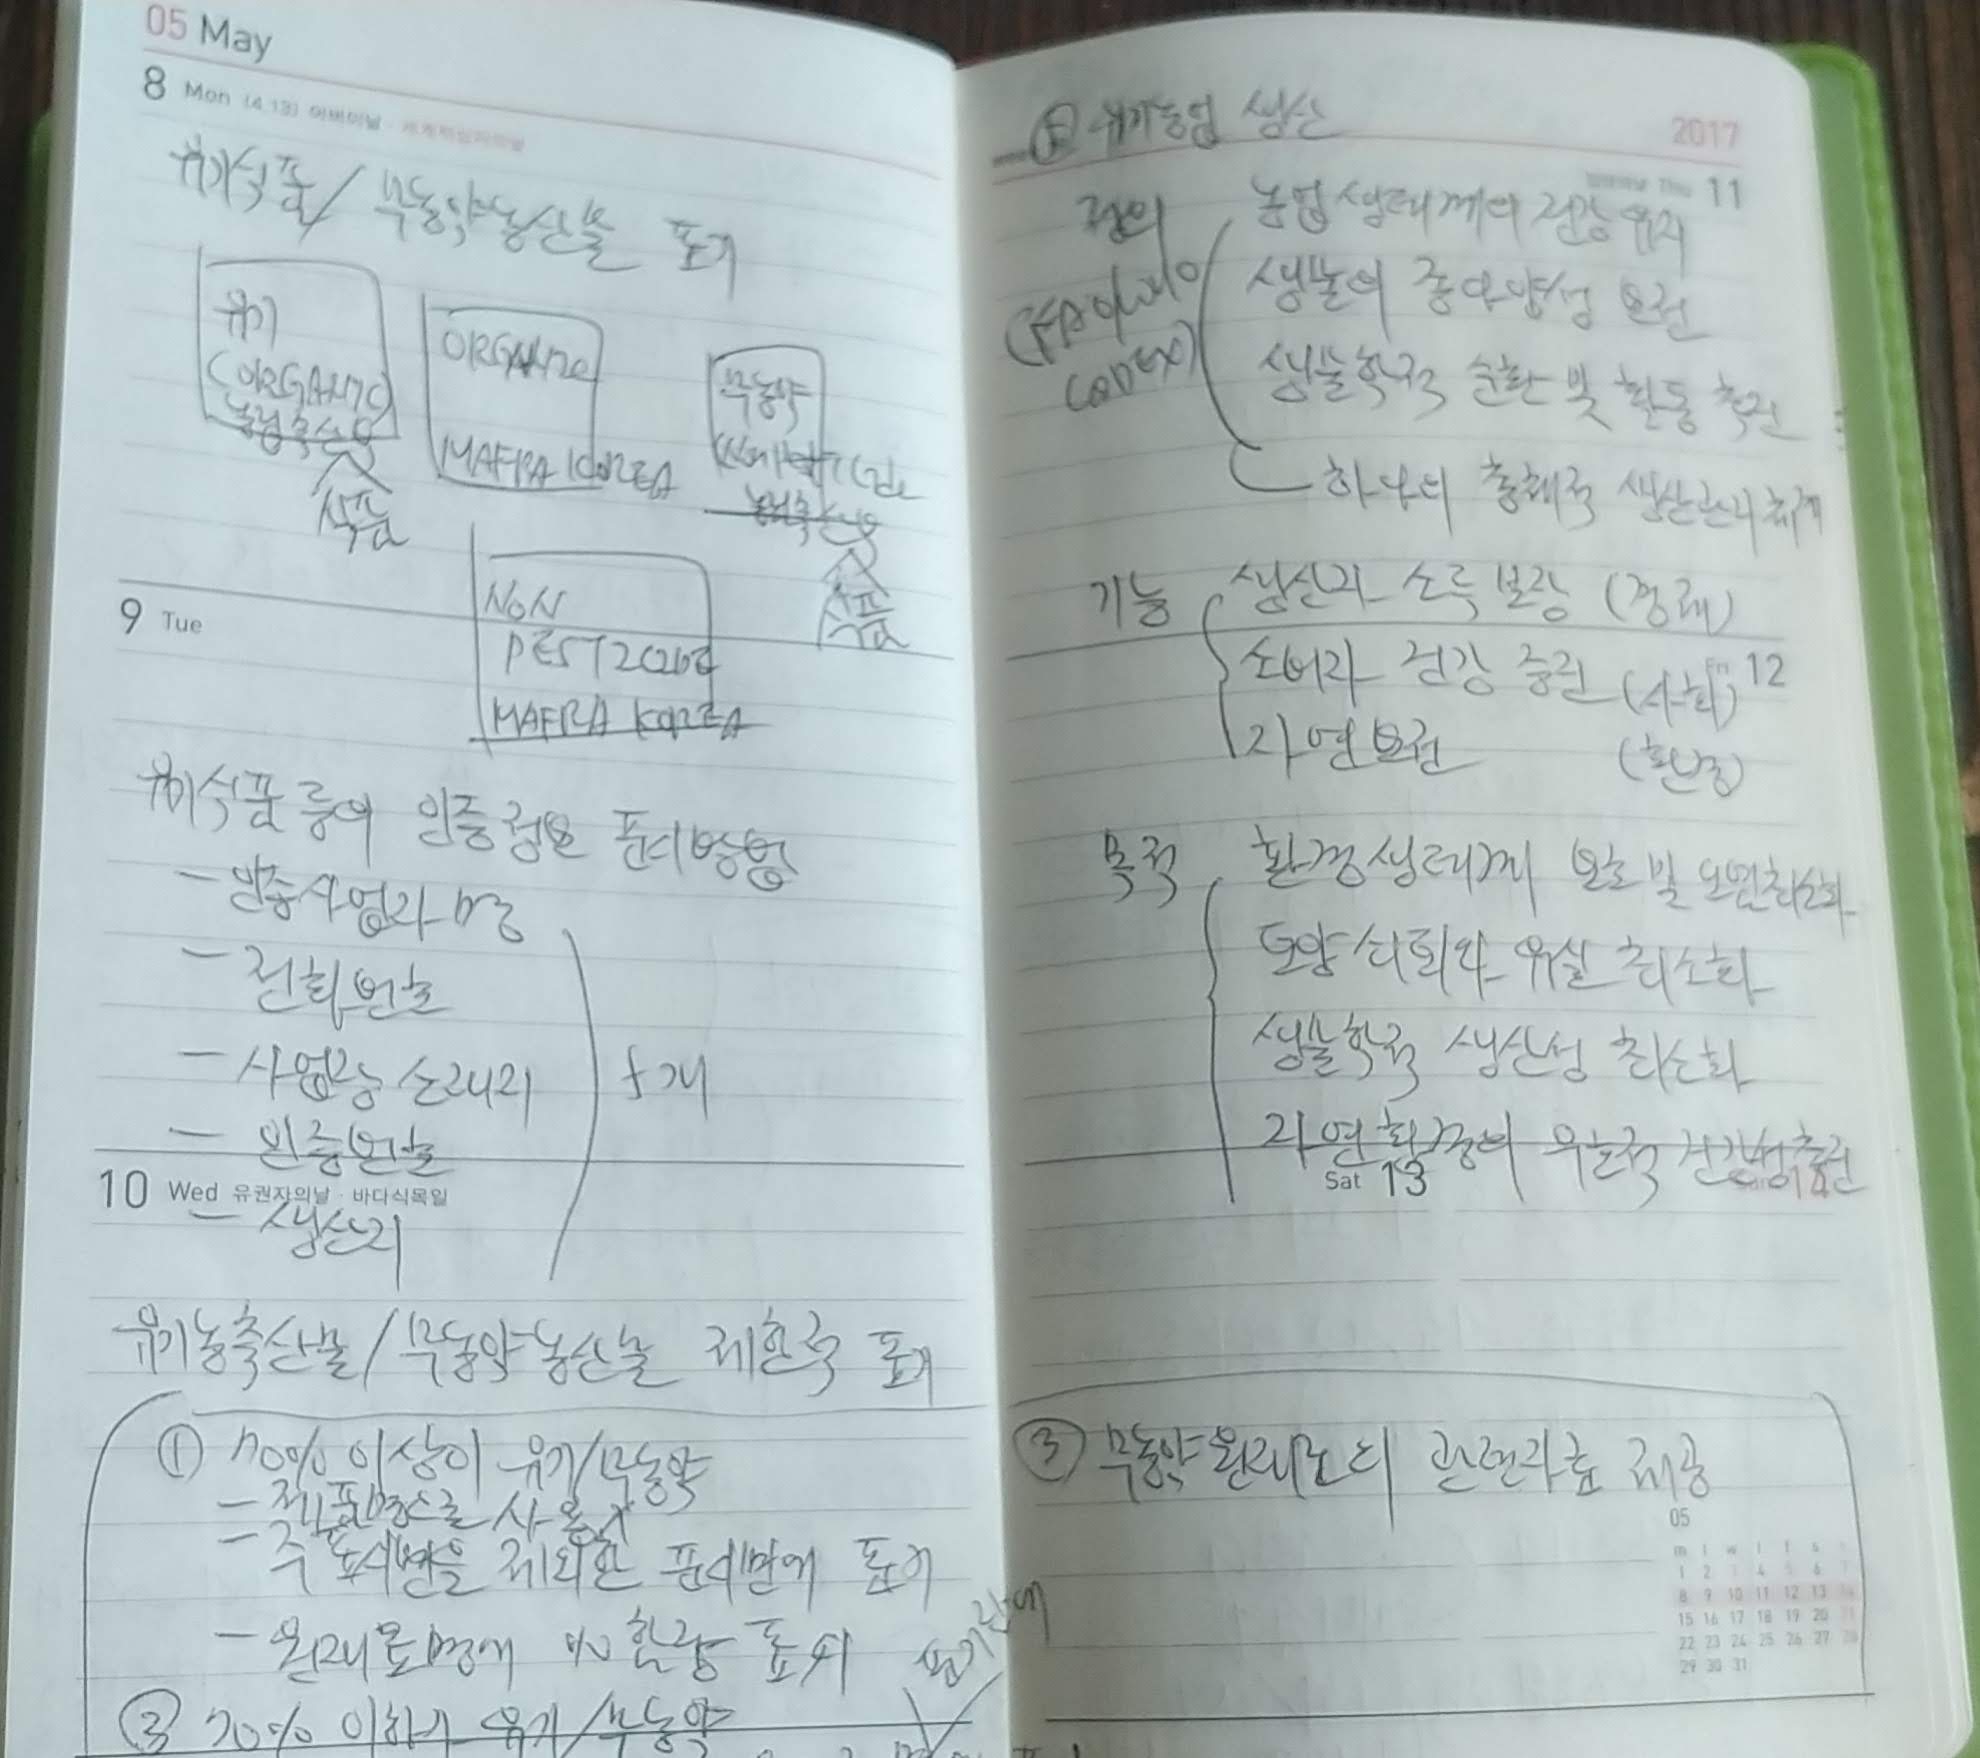 05 May
8 Mon (4.13) 어버이날 · 세계적십자의날
유기식품/ 무농약농산물 표기
유기
(ORGANIC)
농림축산식품
식품
ORGANIC
MAFRA KOREA
무농약
농림축산
식품
9 Tue
NON
PESTICIDE
MAFRA KOREA
유기식품등의 인증정보 표시방법
- 인증사업자 명
- 전화번호
- 사업장 소재지
- 인증번호
5개
10 Wed 유권자의날 · 바다식목일
- 생산지
유기농축산물/무농약농산물 제한적 표기
① 70% 이상이 유기/무농약
- 제품명으로 사용X
- 주 표시면을 제외한 표시면에 표기
- 원재료명에 % 함량 표시
② 70% 이하가 유기/무농약
표기란에
유기농업 생산
2017
Thu 11
정의
CODEX)
농업생태계의 건강유지
생물의 종다양성 보전
생물학적 순환 및 활동 촉진
하나의 총체적 생산관리체계
기능
생산자 소득 보장 (경제)
소비자 건강 증진 (사회)
Fri 12
자연보전 (환경)
목적
환경생태계 보호 및 오염최소화
토양쇠퇴와 유실 최소화
생물학적 생산성 최소화
자연환경의 우호적 건강성촉진
Sat 13
③ 무농약원재료의 관련자료 제공
05
m t w t f s s
1 2 3 4 5 6 7
8 9 10 11 12 13 14
15 16 17 18 19 20 21
22 23 24 25 26 27 28
29 30 31